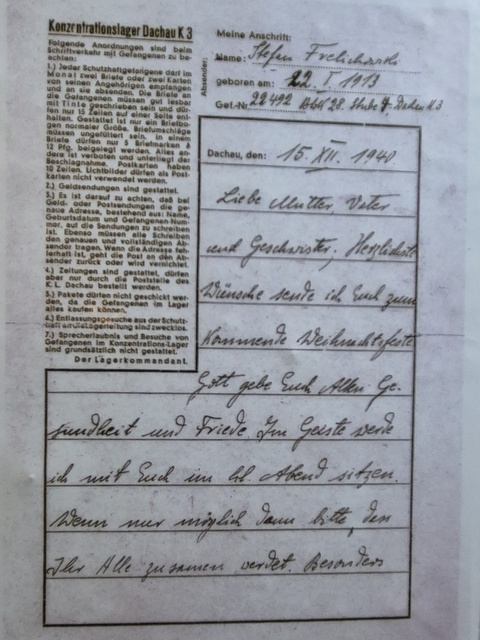 Konzentrationslager Dachau K 3
Folgende Anordnungen sind beim
Schriftverkehr mit Gefangenen zu be-
achten:
1.) Jeder Schutzhaftgefangene darf im
Monat zwei Briefe oder zwei Karten
von seinen Angehörigen empfangen
und an sie absenden. Die Briefe an
die Gefangenen müssen gut lesbar
mit Tinte geschrieben sein und dür-
fen nur 15 Zeilen auf einer Seite ent-
halten. Gestattet ist nur ein Briefbo-
gen normaler Größe. Briefumschläge
müssen ungefüttert sein. In einem
Briefe dürfen nur 5 Briefmarken à
12 Pfg. beigelegt werden. Alles an-
dere ist verboten und unterliegt der
Beschlagnahme. Postkarten haben
10 Zeilen. Lichtbilder dürfen als Post-
karten nicht verwendet werden.
2.) Geldsendungen sind gestattet.
3.) Es ist darauf zu achten, daß bei
Geld- oder Postsendungen die ge-
naue Adresse, bestehend aus: Name,
Geburtsdatum und Gefangenen-Num-
mer, auf die Sendungen zu schreiben
ist. Ebenso müssen alle Schreiben
den genauen und vollständigen Ab-
sender tragen. Wenn die Adresse feh-
lerhaft ist, geht die Post an den Ab-
sender zurück oder wird vernichtet.
4.) Zeitungen sind gestattet, dürfen
aber nur durch die Poststelle des
K. L. Dachau bestellt werden.
5.) Pakete dürfen nicht geschickt wer-
den, da die Gefangenen im Lager
alles kaufen können.
6.) Entlassungsgesuche aus der Schutz-
haft an die Lagerleitung sind zwecklos.
7.) Sprecherlaubnis und Besuche von
Gefangenen im Konzentrations-Lager
sind grundsätzlich nicht gestattet.
Der Lagerkommandant.
Meine Anschrift:
Absender:
Name: Stefan Frelichowski
geboren am: 22. I. 1913
Gef.-Nr. 22492 Block 28. Stube 4, Dachau K3
Dachau, den: 15. XII. 1940.
Liebe Mutter, Vater
und Geschwister. Herzlichste
Wünsche sende ich Euch zum
Kommende Weihnachtsfeste
Gott gebe Euch Allen Ge-
sundheit und Friede. Im Geiste werde
ich mit Euch im hl. Abend sitzen.
Wenn nur möglich dann bitte, dass
Ihr Alle zusamen werdet. Besonders